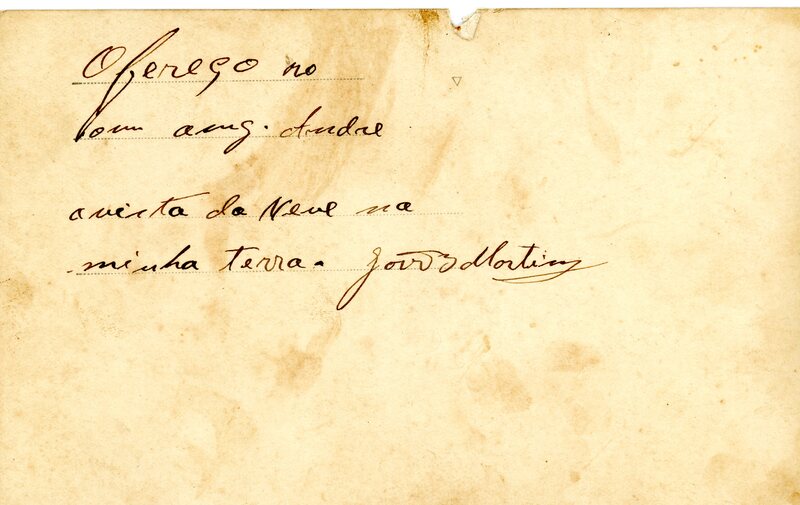 Ofereço ao
bom amg. Andre
a vista da Neve na
minha terra. João B Martins